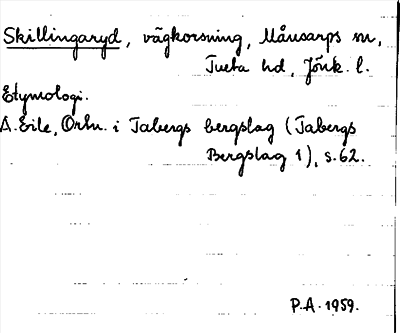 Skillingaryd, vägkorsning, Månsarps sn,
Tveta hd, Jönk. l.
Etymologi.
A. Eile, Ortn. i Tabergs bergslag (Tabergs
Bergslag 1), s. 62.
P.A. 1959.